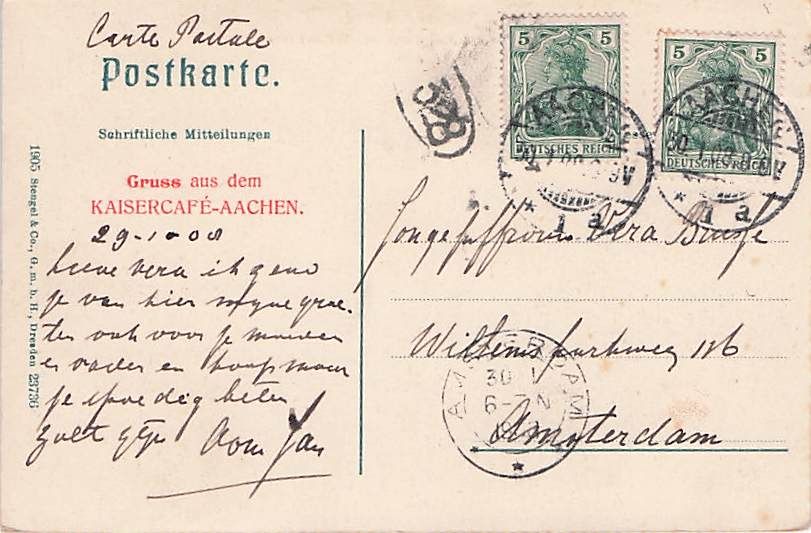 Carte Postale
Postkarte.
Schriftliche Mitteilungen
Gruss aus dem
KAISERCAFÉ-AACHEN.
29-1-08
Lieve Vera ik zend
je van hier mijne groe-
ten ook voor je moeder
en vader en hoop maar
je spoedig beter
zult zijn Oom Jan
1905 Stengel & Co., G. m. b. H., Dresden 23736
328
5 5
DEUTSCHES REICH
5 5
DEUTSCHES REICH
AACHEN
* 1 a
AACHEN
* 1 a
Jongejuffrouw Vera
Willemsparkweg 116
Amsterdam
AMSTERDAM
30 1
6-7 N